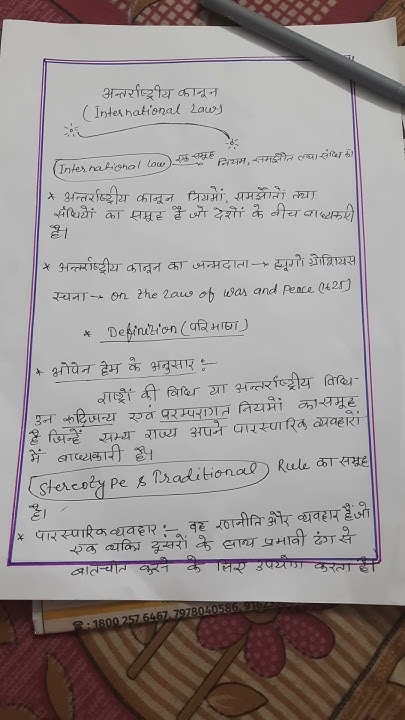 अन्तर्राष्ट्रीय कानून
(International Law)
International Law → एक समूह नियम, समझौते तथा संधि का
* अन्तर्राष्ट्रीय कानून नियमों, समझौतों तथा
संधियों का समूह है जो देशों के बीच बाध्यकारी
है।
* अन्तर्राष्ट्रीय कानून का जन्मदाता → ह्यूगो ग्रोशियस
रचना → on the Law of war and peace (1625)
* Definition (परिभाषा)
* ओपेन हेम के अनुसार :-
राष्ट्रों की विधि या अन्तर्राष्ट्रीय विधि
उन रूढ़िजन्य एवं परम्परागत नियमों का समूह
है जिन्हें सभ्य राज्य अपने पारस्पारिक व्यवहारों
में बाध्यकारी है।
Stereotype & Traditional Rule का समूह
है।
* पारस्पारिक व्यवहार :- वह रणनीति और व्यवहार हैं जो
एक व्यक्ति दूसरों के साथ प्रभावी ढंग से
बातचीत करने के लिए उपयोग करता है।
: 1800 257 6467, 7978040586,